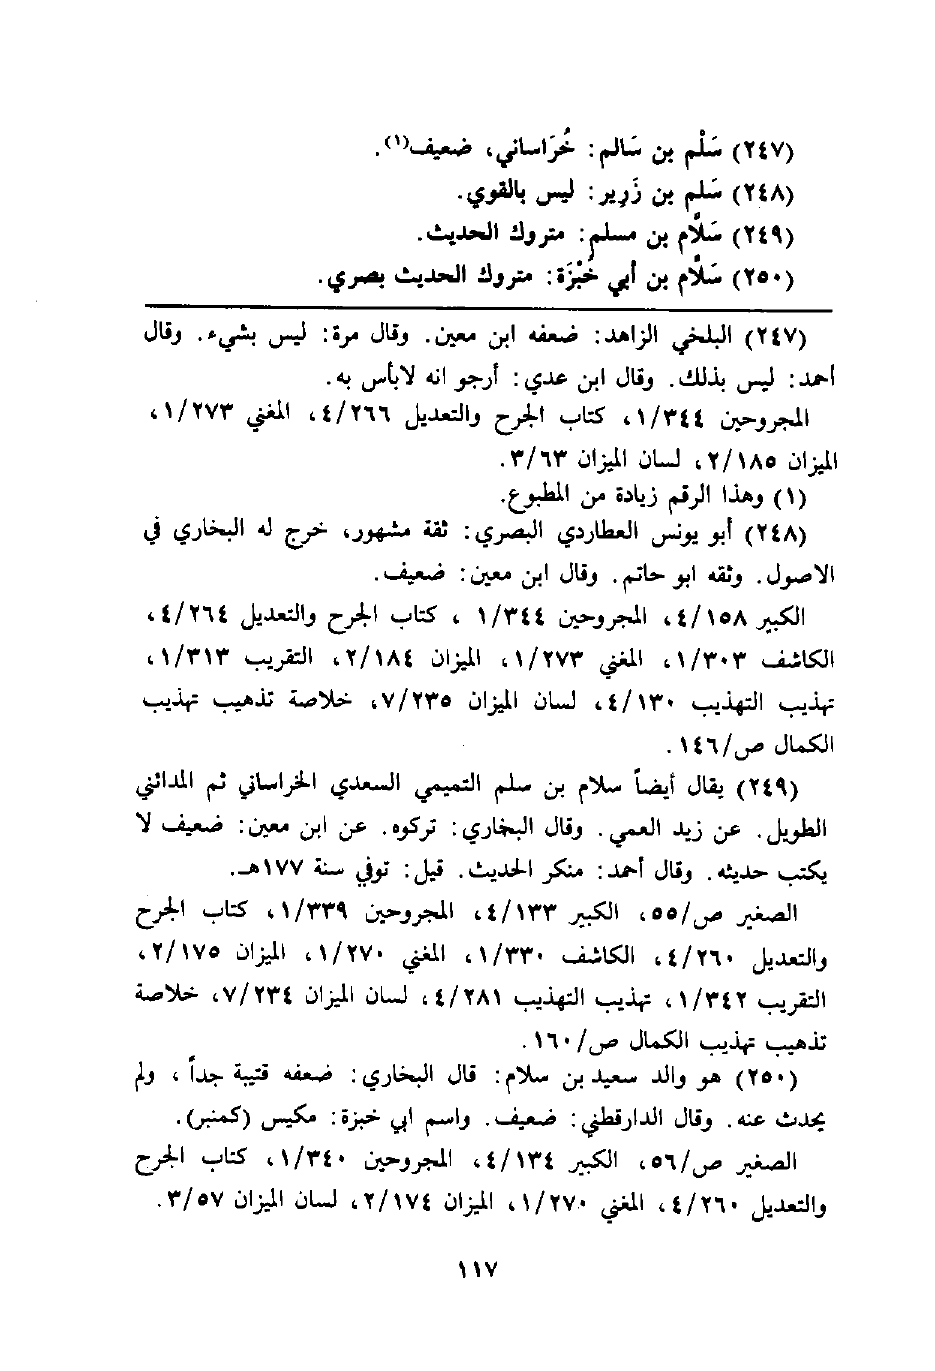 (٢٤٧) سَلْم بن سَالم: خُرَاساني، ضعيف(١).
(٢٤٨) سَلم بن زَرِير: ليس بالقوي.
(٢٤٩) سَلاَّم بن مسلم: متروك الحديث.
(٢٥٠) سَلاَّم بن أبي خُبْزَة: متروك الحديث بصري.
(٢٤٧) البلخي الزاهد: ضعفه ابن معين. وقال مرة: ليس بشيء. وقال
أحمد: ليس بذلك. وقال ابن عدي: أرجو انه لابأس به.
المجروحين ١/٣٤٤، كتاب الجرح والتعديل ٤/٢٦٦، المغني ١/٢٧٣،
الميزان ٢/١٨٥، لسان الميزان ٣/٦٣.
(١) وهذا الرقم زيادة من المطبوع.
(٢٤٨) أبو يونس العطاردي البصري: ثقة مشهور، خرج له البخاري في
الاصول. وثقه ابو حاتم. وقال ابن معين: ضعيف.
الكبير ٤/١٥٨، المجروحين ١/٣٤٤ ، كتاب الجرح والتعديل ٤/٢٦٤،
الكاشف ١/٣٠٣، المغني ١/٢٧٣، الميزان ٢/١٨٤، التقريب ١/٣١٣،
تهذيب التهذيب ٤/١٣٠، لسان الميزان ٧/٢٣٥، خلاصة تذهيب تهذيب
الكمال ص/١٤٦.
(٢٤٩) يقال أيضاً سلام بن سلم التميمي السعدي الخراساني ثم المدائني
الطويل. عن زيد العمي. وقال البخاري: تركوه. عن ابن معين: ضعيف لا
يكتب حديثه. وقال أحمد: منكر الحديث. قيل: توفي سنة ١٧٧هـ.
الصغير ص/٥٥، الكبير ٤/١٣٣، المجروحين ١/٣٣٩، كتاب الجرح
والتعديل ٤/٢٦٠، الكاشف ١/٣٣٠، المغني ١/٢٧٠، الميزان ٢/١٧٥،
التقريب ١/٣٤٢، تهذيب التهذيب ٤/٢٨١، لسان الميزان ٧/٢٣٤، خلاصة
تذهيب تهذيب الكمال ص/١٦٠.
(٢٥٠) هو والد سعيد بن سلام: قال البخاري: ضعفه قتيبة جداً ، ولم
يحدث عنه. وقال الدارقطني: ضعيف. واسم ابي خبزة: مكيس (كمنبر).
الصغير ص/٥٦، الكبير ٤/١٣٤، المجروحين ١/٣٤٠، كتاب الجرح
والتعديل ٤/٢٦٠، المغني ١/٢٧٠، الميزان ٢/١٧٤، لسان الميزان ٣/٥٧.
١١٧